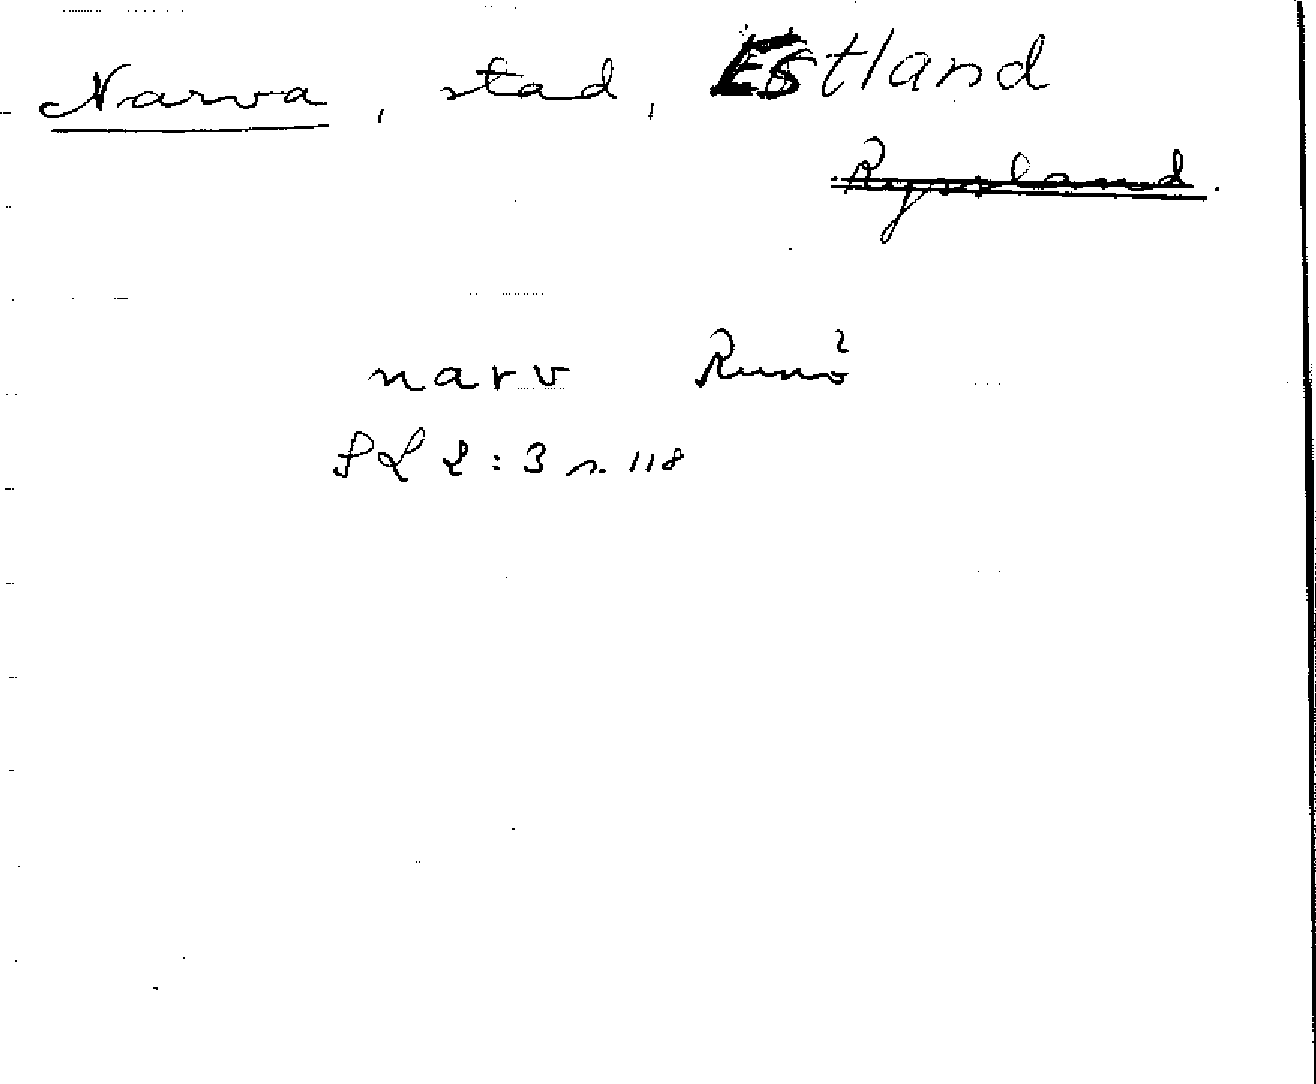 Narva, stad, Estland
Ryssland.
narv Runö
SL 2:3 s. 118